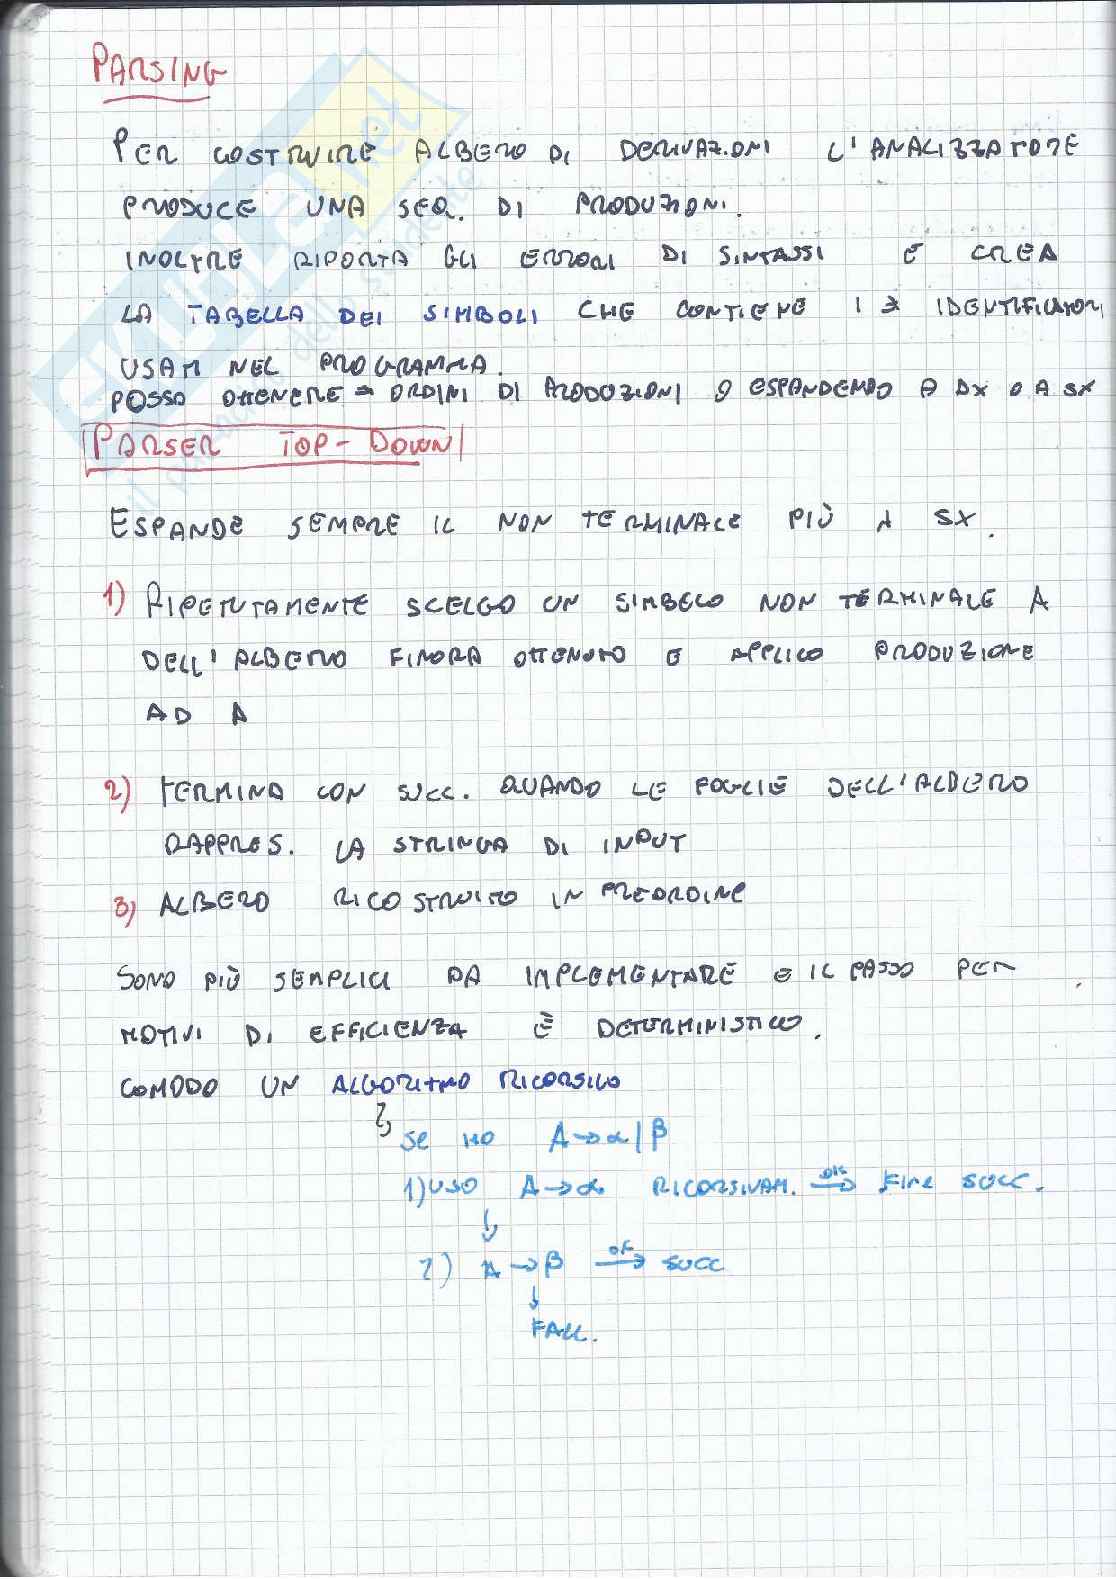 PARSING
PER COSTRUIRE ALBERO DI DERIVAZIONI L'ANALIZZATORE
PRODUCE UNA SEQ. DI PRODUZIONI.
INOLTRE RIPORTA GLI ERRORI DI SINTASSI E CREA
LA TABELLA DEI SIMBOLI CHE CONTIENE I IDENTIFICATORI
USATI NEL PROGRAMMA.
POSSO OTTENERE ORDINI DI PRODUZIONI ESPANDENDO A DX O A SX
PARSER TOP-DOWN
ESPANDE SEMPRE IL NON TERMINALE PIÙ A SX.
1) RIPETUTAMENTE SCELGO UN SIMBOLO NON TERMINALE A
DELL'ALBERO FINORA OTTENUTO E APPLICO PRODUZIONE
AD A
2) TERMINA CON SUCC. QUANDO LE FOGLIE DELL'ALBERO
RAPPRES. LA STRINGA DI INPUT
3) ALBERO RICOSTRUITO IN PREORDINE
SONO PIÙ SEMPLICI DA IMPLEMENTARE E IL PASSO PER
MOTIVI DI EFFICIENZA È DETERMINISTICO.
COMODO UN ALGORITMO RICORSIVO
SE HO A→α|β
1) USO A→α RICORSIVAM. → FINE SUCC.
↓
2) A→β OK → SUCC
↓
FALL.